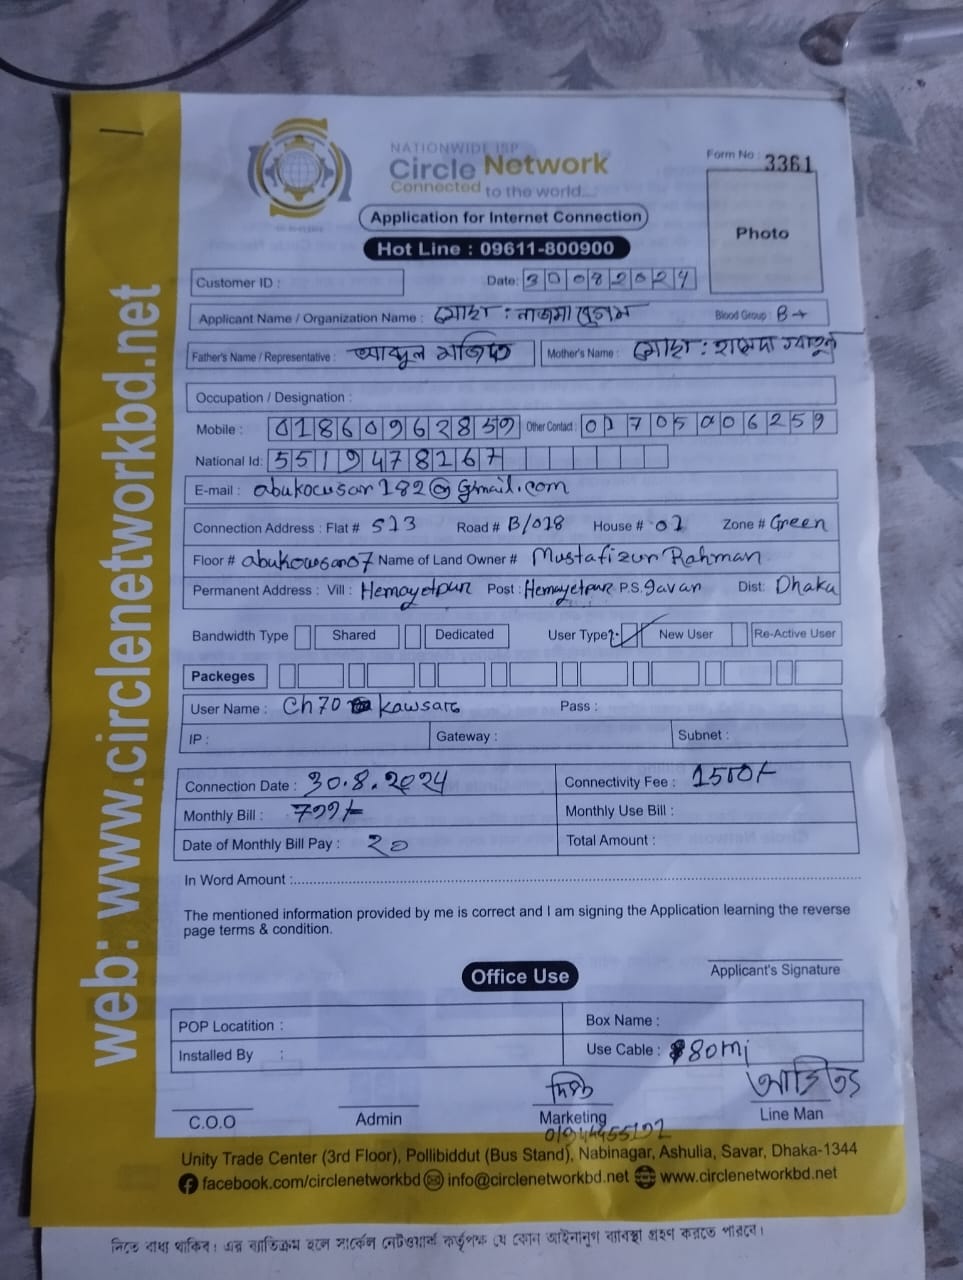 web: www.circlenetworkbd.net
NATIONWIDE ISP
Circle Network
Connected to the world...
Form No : 3361
Application for Internet Connection
Hot Line : 09611-800900
Photo
Customer ID : Date: 30082024
Applicant Name / Organization Name : মোছা: নাজমা বেগম Blood Group : B+
Father's Name / Representative : আব্দুল মজিদ Mother's Name : মোছা:
Occupation / Designation :
Mobile : 01860962859 Other Contact : 01705006259
National Id: 5519478267
E-mail : abukocusar182@gmail.com
Connection Address : Flat # 513 Road # B/018 House # 01 Zone # Green
Floor # abukowsar07 Name of Land Owner # Mustafizur Rahman
Permanent Address : Vill : Hemayetpur Post : Hemayetpur P.S. Savar Dist: Dhaka
Bandwidth Type Shared Dedicated User Type New User Re-Active User
Packeges
User Name : Ch70 Kawsar Pass :
IP : Gateway : Subnet :
Connection Date : 30.8.2024 Connectivity Fee : 1500/-
Monthly Bill : 799/- Monthly Use Bill :
Date of Monthly Bill Pay : 20 Total Amount :
In Word Amount :
The mentioned information provided by me is correct and I am signing the Application learning the reverse
page terms & condition.
Applicant's Signature
Office Use
POP Locatition : Box Name :
Installed By : Use Cable : 80mi
C.O.O Admin Marketing Line Man
Unity Trade Center (3rd Floor), Pollibiddut (Bus Stand), Nabinagar, Ashulia, Savar, Dhaka-1344
facebook.com/circlenetworkbd info@circlenetworkbd.net www.circlenetworkbd.net
নিতে বাধ্য থাকিব। এর ব্যতিক্রম হলে সার্কেল নেটওয়ার্ক কর্তৃপক্ষ যে কোন আইনানুগ ব্যবস্থা গ্রহণ করতে পারবে।